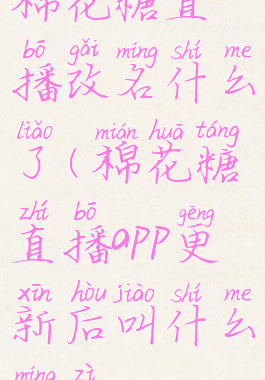 棉花糖直
bō gǎi míng shí me
播改名什么
liǎo mián huā táng
了(棉花糖
zhí bō gēng
直播app更
xīn hòu jiào shí me
新后叫什么
míng zì